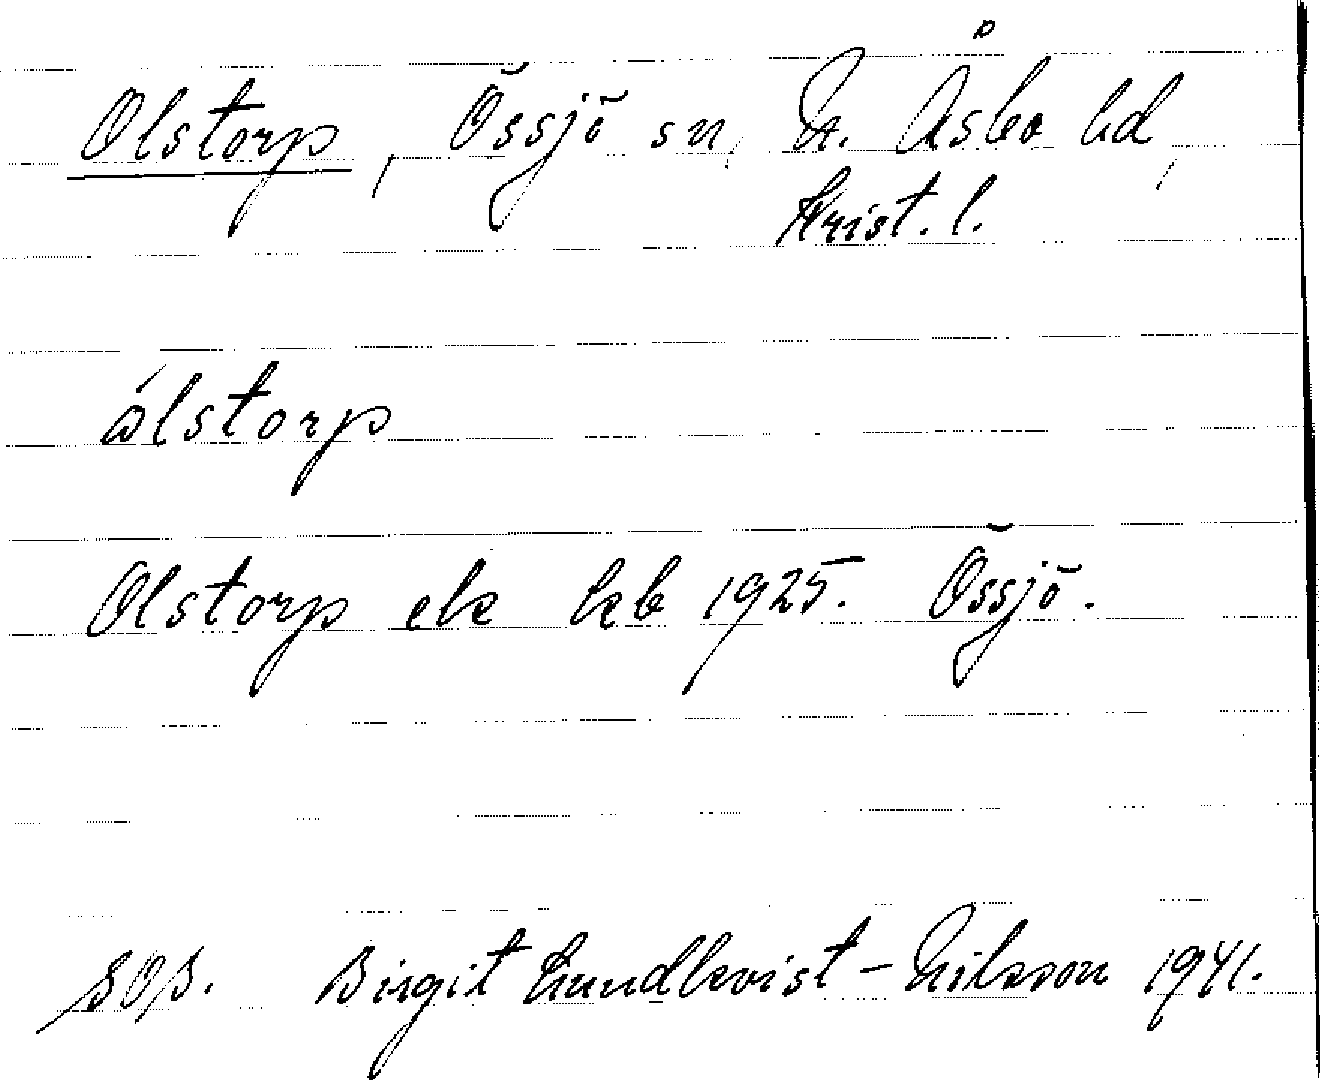 Olstorp, Össjö sn, N. Åsbo hd,
Krist. l.
ólstorp
Olstorp ek kb 1925. Össjö.
SOS. Birgit Lundkvist-Nilsson 1941.